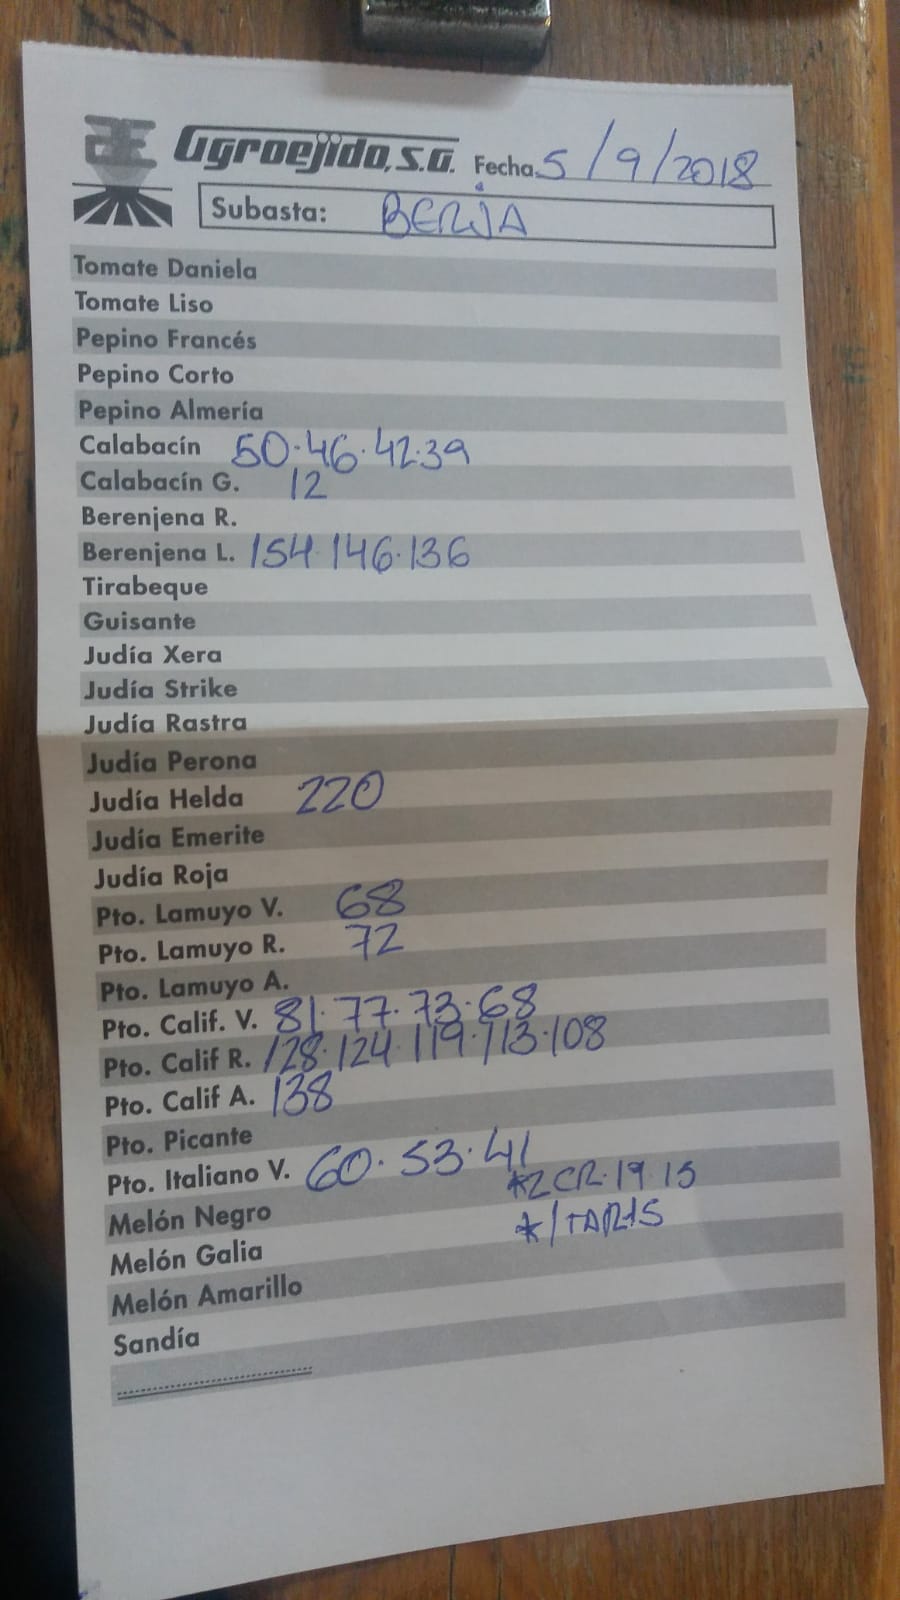 Agroejido, S.A. Fecha 5/9/2018
Subasta: BERJA
Tomate Daniela
Tomate Liso
Pepino Francés
Pepino Corto
Pepino Almería
Calabacín 50.46.42.39
Calabacín G. 12
Berenjena R.
Berenjena L. 154.146.136
Tirabeque
Guisante
Judía Xera
Judía Strike
Judía Rastra
Judía Perona
Judía Helda 220
Judía Emerite
Judía Roja
Pto. Lamuyo V. 68
Pto. Lamuyo R. 72
Pto. Lamuyo A.
Pto. Calif. V. 81.77.73.68
Pto. Calif R. 128.124.119.113.108
Pto. Calif A. 138
Pto. Picante
Pto. Italiano V. 60.53.41
*2CR.19.15
Melón Negro
*/TAR15
Melón Galia
Melón Amarillo
Sandía